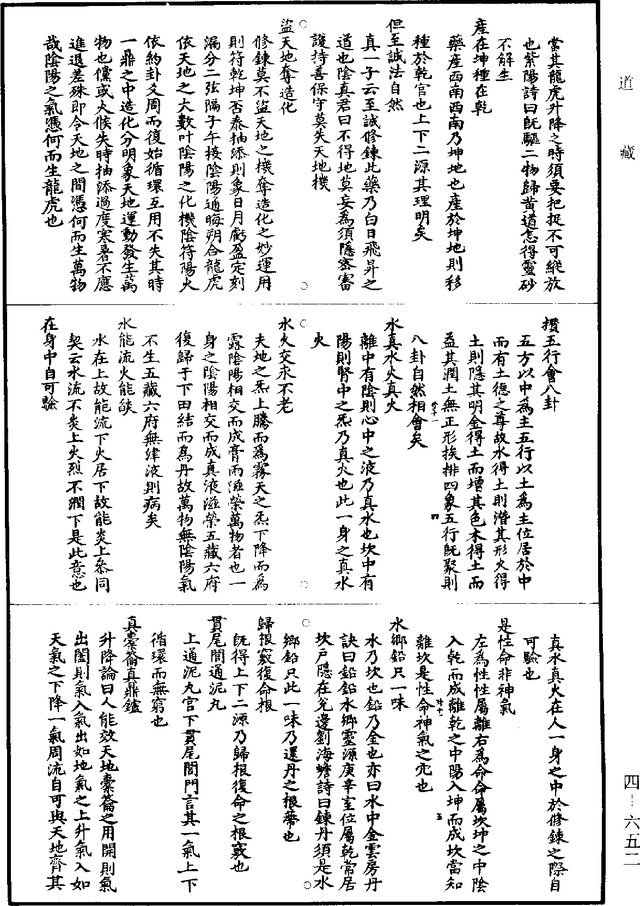 道藏
當其龍虎升降之時須要把捉不可縱放
也紫陽詩曰既驅二物歸黃道怎得靈砂
不解生
產在坤種在乾
藥產西南西南乃坤地也產於坤地則移
種於乾宮也上下二源其理明矣
但至誠法自然
真一子云至誠修鍊此藥乃白日飛昇之
道也陰真君曰不得地莫妄為須隱密審
護持善保守莫失天地機
盜天地奪造化
修鍊莫不盜天地之機奪造化之妙運用
則符乾坤否泰抽添則象日月虧盈定刻
漏分二弦隔子午接陰陽通晦朔合龍虎
依天地之大數叶陰陽之化機陰符陽火
依約卦爻周而復始循環互用不失其時
一鼎之中造化分明象天地運動發生萬
物也儻或火候失時抽添過度寒暑不應
進退差殊即令天地之間憑何而生萬物
哉陰陽之氣憑何而生龍虎也
攢五行會八卦
五方以中為主五行以土為主位居於中
而有土德之尊故水得土則潛其形火得
土則隱其明金得土而增其色木得土而
益其潤土無正形挨排四象五行既聚則
八卦自然相會矣
水真水火真火
離中有陰則心中之液乃真水也坎中有
陽則腎中之炁乃真火也此一身之真水
火
水火交永不老
夫地之炁上騰而為霧天之炁下降而為
露陰陽相交而成膏雨滋榮萬物者也一
身之陰陽相交而成真液滋榮五藏六府
復歸于下田結而為丹故萬物無陰陽氣
不生五藏六府無津液則病矣
水能流火能燄
水在上故能流下火居下故能炎上參同
契云水流不炎上火烈不潤下是此意也
在身中自可驗
真水真火在人一身之中於修鍊之際自
可驗也
是性命非神氣
左為性性屬離右為命命屬坎坤之中陰
入乾而成離乾之中陽入坤而成坎當知
離坎是性命神氣之穴也
水鄉鉛只一味
水乃坎也鉛乃金也亦曰水中金雲房丹
訣曰鉛鉛水鄉靈源庚辛室位屬乾常居
坎戶隱在兌邊劉海蟾詩曰鍊丹須是水
鄉鉛只此一味乃還丹之根蔕也
歸根竅復命根
既得上下二源乃歸根復命之根竅也
貫尾閭通泥丸
上通泥丸宮下貫尾閭門言其一氣上下
循環而無窮也
真橐籥真鼎鑪
升降論曰人能效天地橐籥之用開則氣
出闔則氣入氣出如地氣之上升氣入如
天氣之下降一氣周流自可與天地齊其
四—六五二